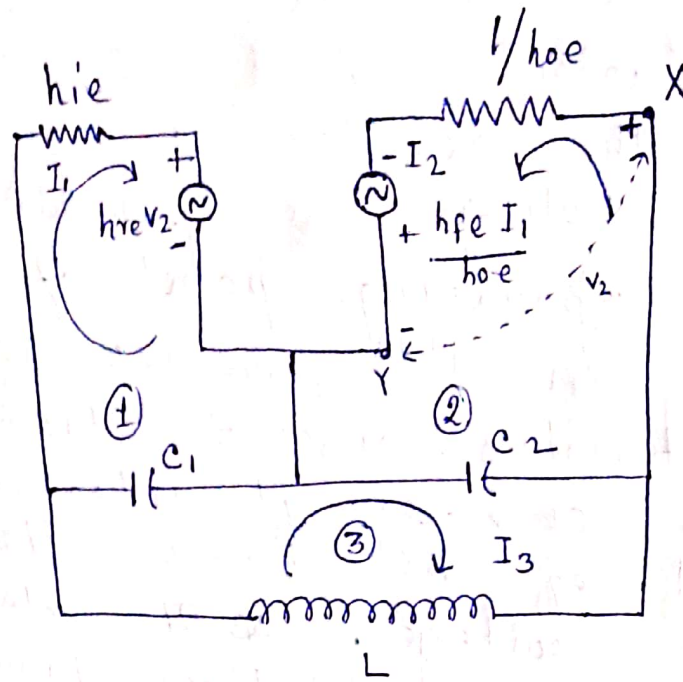 hie
1/hoe
X
+
I₁
+
hre v₂
-
- I₂
+ hfe I₁
hoe
v₂
-
Y
①
②
C₁
C2
③
I₃
L